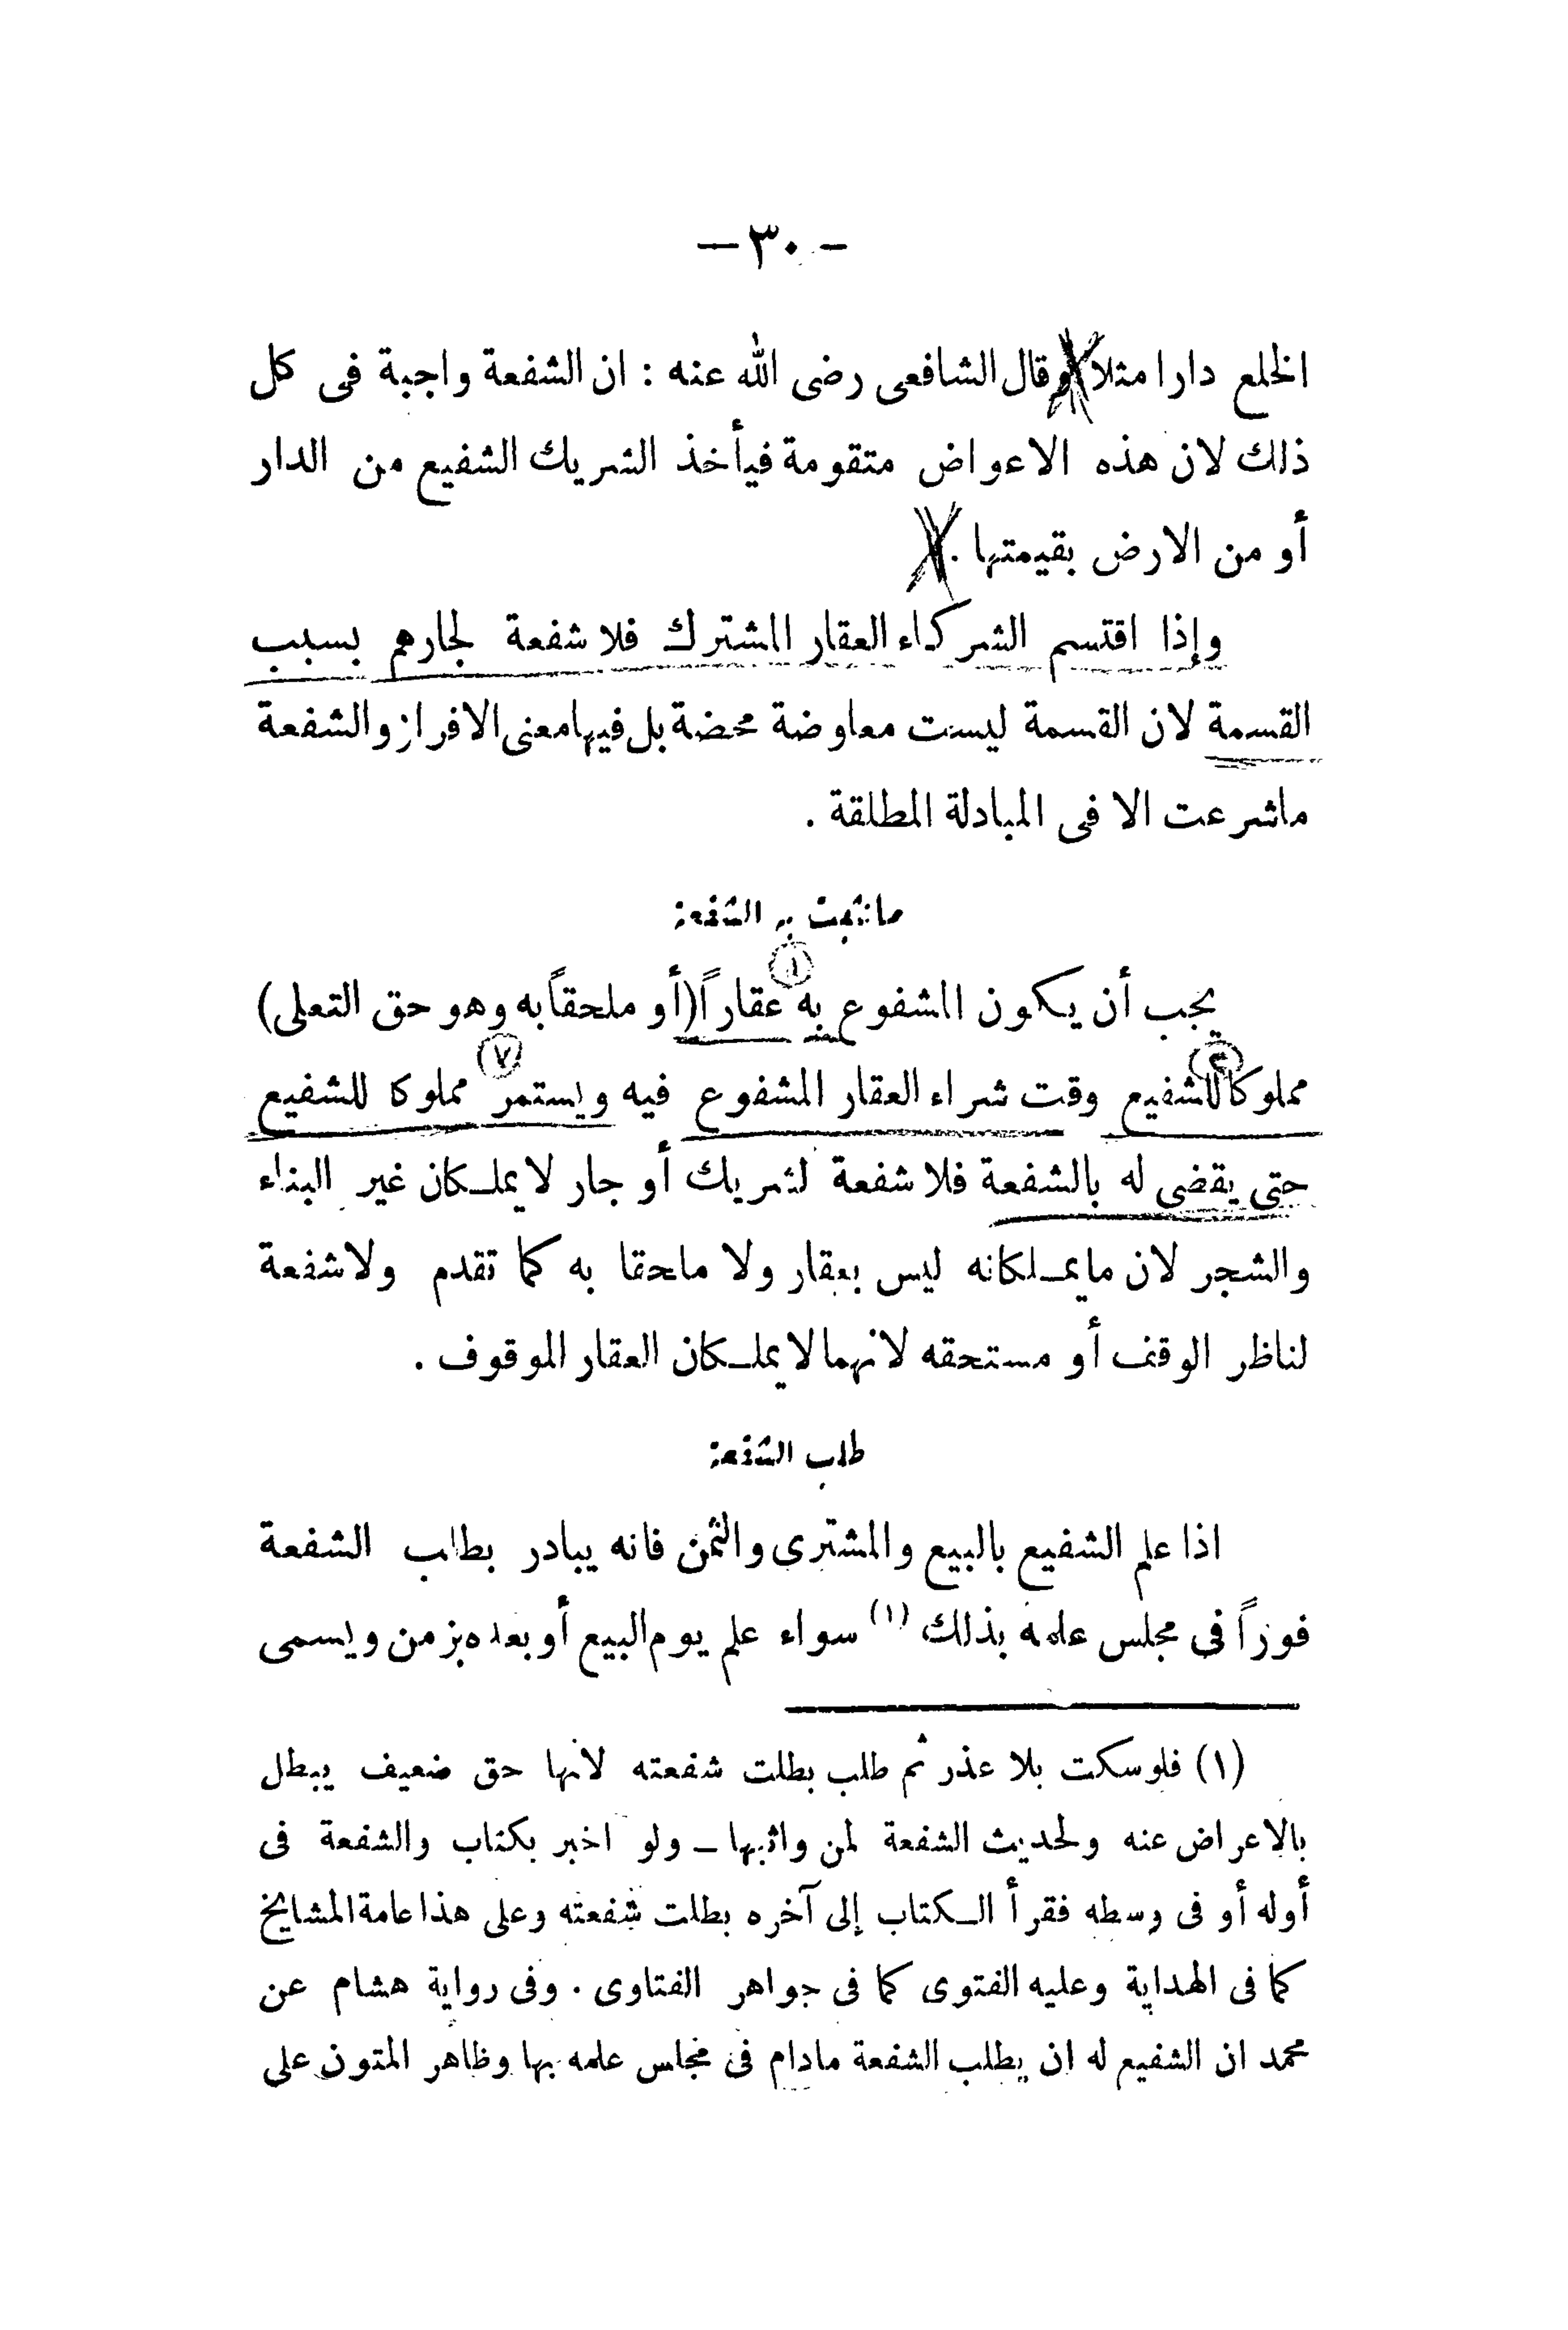 — ٣٠ —
الخلع دارا مثلا وقال الشافعى رضى الله عنه : ان الشفعة واجبة فى كل
ذلك لان هذه الاعواض متقومة فيأخذ الشريك الشفيع من الدار
أو من الارض بقيمتها .
وإذا اقتسم الشركاء العقار المشترك فلا شفعة لجارهم بسبب
القسمة لان القسمة ليست معاوضة محضة بل فيها معنى الافراز والشفعة
ماشرعت الا فى المبادلة المطلقة .
ما تثبت به الشفعة
١
يجب أن يكون المشفوع به عقاراً (أو ملحقاً به وهو حق التعلى)
٢ ٧
مملوكا للشفيع وقت شراء العقار المشفوع فيه ويستمر مملوكا للشفيع
حتى يقضى له بالشفعة فلا شفعة لشريك أو جار لا يملكان غير البناء
والشجر لان ما يملكانه ليس بعقار ولا ملحقا به كما تقدم ولا شفعة
لناظر الوقف أو مستحقه لانهما لا يملكان العقار الموقوف .
طلب الشفعة
اذا علم الشفيع بالبيع والمشترى والثمن فانه يبادر بطلب الشفعة
فوراً فى مجلس علمه بذلك (١) سواء علم يوم البيع أو بعده بزمن ويسمى
(١) فلو سكت بلا عذر ثم طلب بطلت شفعته لانها حق ضعيف يبطل
بالاعراض عنه ولحديث الشفعة لمن واثبها ـ ولو اخبر بكتاب والشفعة فى
أوله أو فى وسطه فقرأ الكتاب إلى آخره بطلت شفعته وعلى هذا عامة المشايخ
كما فى الهداية وعليه الفتوى كما فى جواهر الفتاوى . وفى رواية هشام عن
محمد ان الشفيع له ان يطلب الشفعة مادام فى مجلس علمه بها وظاهر المتون على